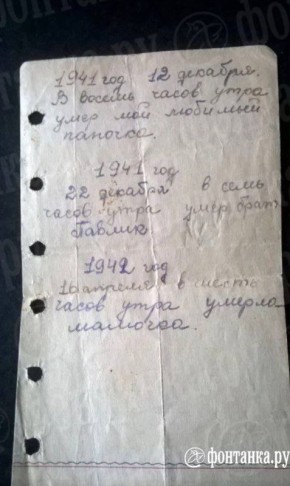 1941 год 12 декабря.
В восемь часов утра
умер мой любимый
папочка.
1941 год
22 декабря в семь
часов утра умер брат
Павлик
1942 год
16 апреля в шесть
часов утра умерла
мамочка.
фонтанка.ру